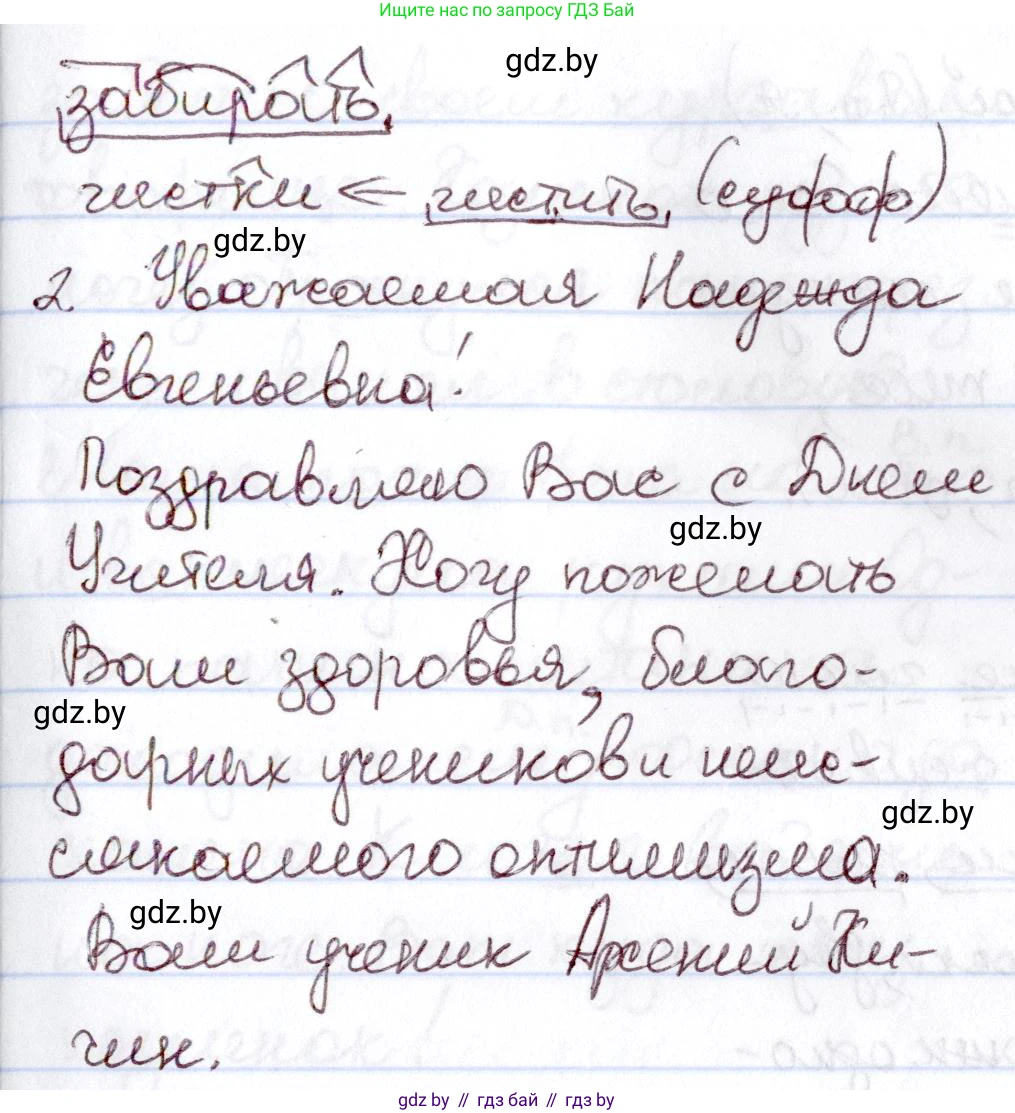 Ищите нас по запросу ГДЗ Бай
gdz.by
забирать.
чистки ← чистить (суфф)
gdz.by
2. Уважаемая Надежда
Евгеньевна!
Поздравляю Вас с Днем
gdz.by
Учителя. Хочу пожелать
Вам здоровья, благо-
gdz.by
дарных учеников и неис-
gdz.by
сякаемого оптимизма.
gdz.by
Ваш ученик Арсений Ки-
чин.
gdz.by // гдз бай // gdz by